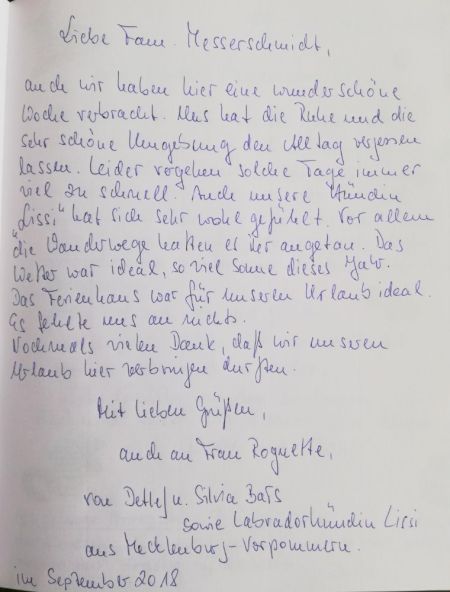 Liebe Frau Messerschmidt,
auch wir haben hier eine wunderschöne
Woche verbracht. Uns hat die Ruhe und die
sehr schöne Umgebung den Alltag vergessen
lassen. Leider vergehen solche Tage immer
viel zu schnell. Auch unsere Hündin
"Lissi" hat sich sehr wohl gefühlt. Vor allem
die Wanderwege hatten es ihr angetan. Das
Wetter war ideal, so viel Sonne dieses Jahr.
Das Ferienhaus war für unseren Urlaub ideal.
Es fehlte uns an nichts.
Nochmals vielen Dank, daß wir unseren
Urlaub hier verbringen durften.
Mit lieben Grüßen,
auch an Frau Roquette,
von Detlef u. Silvia
sowie Labradorhündin Lissi
aus Mecklenburg-Vorpommern.
im September 2018